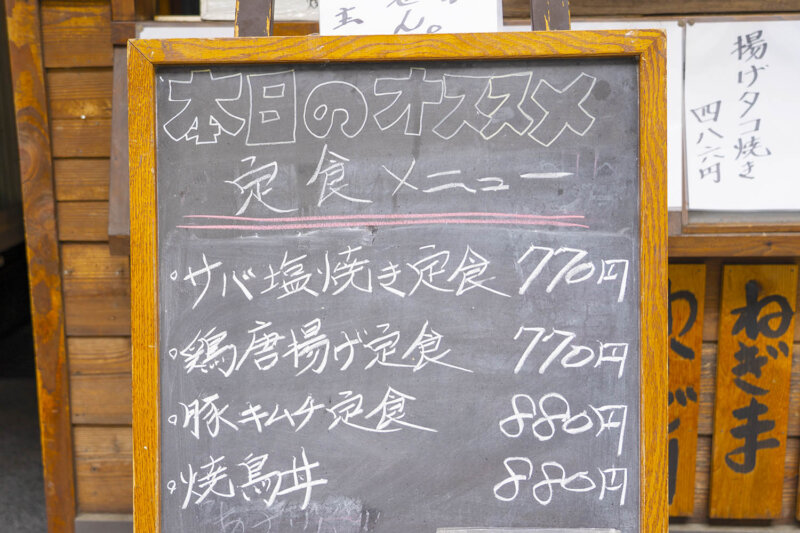 せん。
本日のオススメ
定食メニュー
・サバ塩焼き定食 770円
・鶏唐揚げ定食 770円
・豚キムチ定食 880円
・焼鳥丼 880円
揚げタコ焼き
四八六円
ねぎま